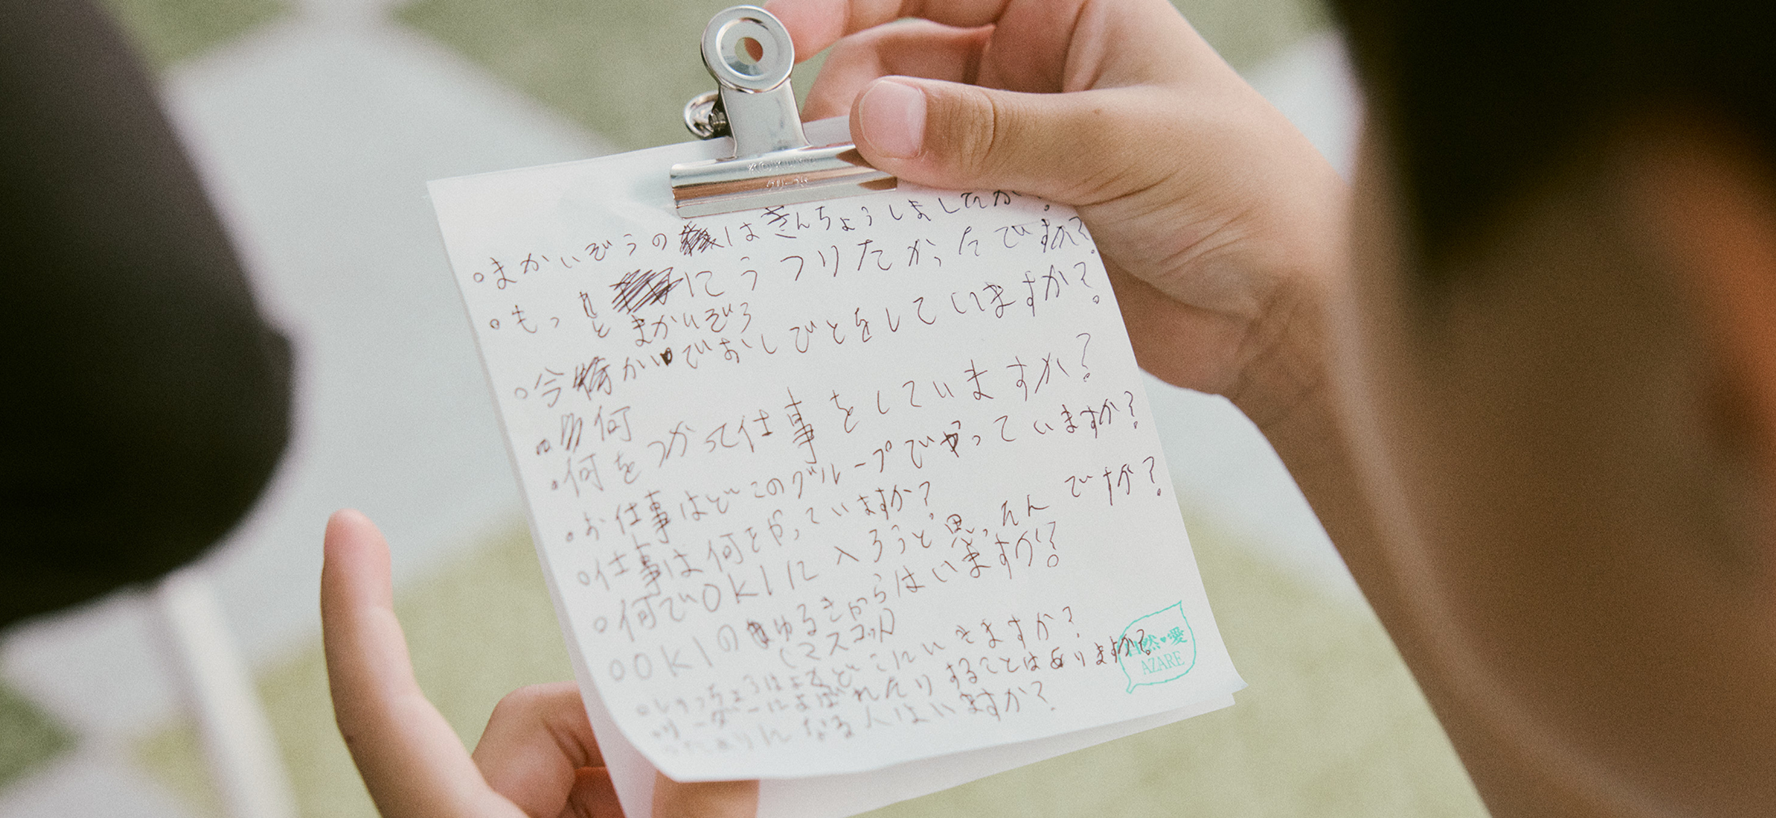 まかいぞうの はきんちょうしましたか?
もっと にうつりたかったですか?
まかいぞう
今 かいでおしびとをしていますか?
何
何をつかって仕事をしていますか?
お仕事はどこのグループでやっていますか?
仕事は何をやっていますか?
何でOKIに入ろうと思ったんですか?
OKIのゆるきゃらはいますか?
(マスコット)
しゅっちょうは どこにいきますか?
リーダーに れたりすることはありますか?
になる人はいますか?
自然♥愛
AZARE